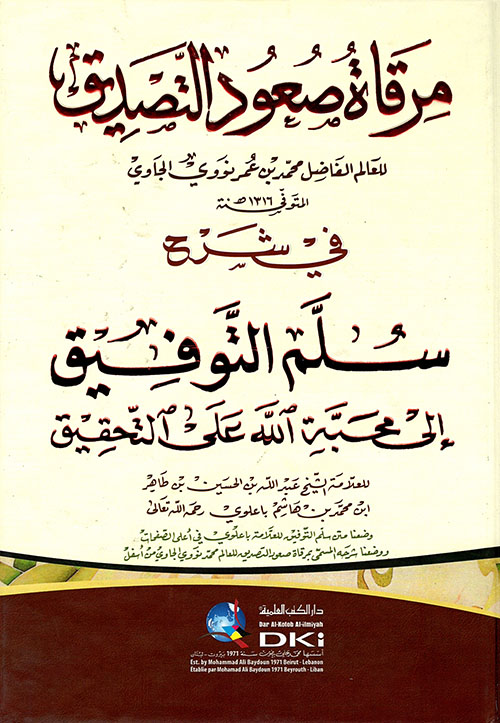 مرقاة صعود التصديق
للعالم الفاضل محمد بن عمر نووي الجاوي
المتوفى ١٣١٦ هـ سنة
في شرح
سلم التوفيق
إلى محبة الله على التحقيق
للعلامة الشيخ عبد الله بن الحسين بن طاهر
ابن محمد بن هاشم باعلوي رحمه الله تعالى
وضعنا متن سلم التوفيق للعلامة باعلوي في أعلى الصفحات
ووضعنا شرحه المسمى بمرقاة صعود التصديق للعالم محمد نووي الجاوي من أسفل
دار الكتب العلمية
Dar Al-Kotob Al-ilmiyah
DKi
أسسها محمد علي بيضون سنة 1971 بيروت - لبنان
Est. by Mohammad Ali Baydoun 1971 Beirut - Lebanon
Établie par Mohamad Ali Baydoun 1971 Beyrouth - Liban